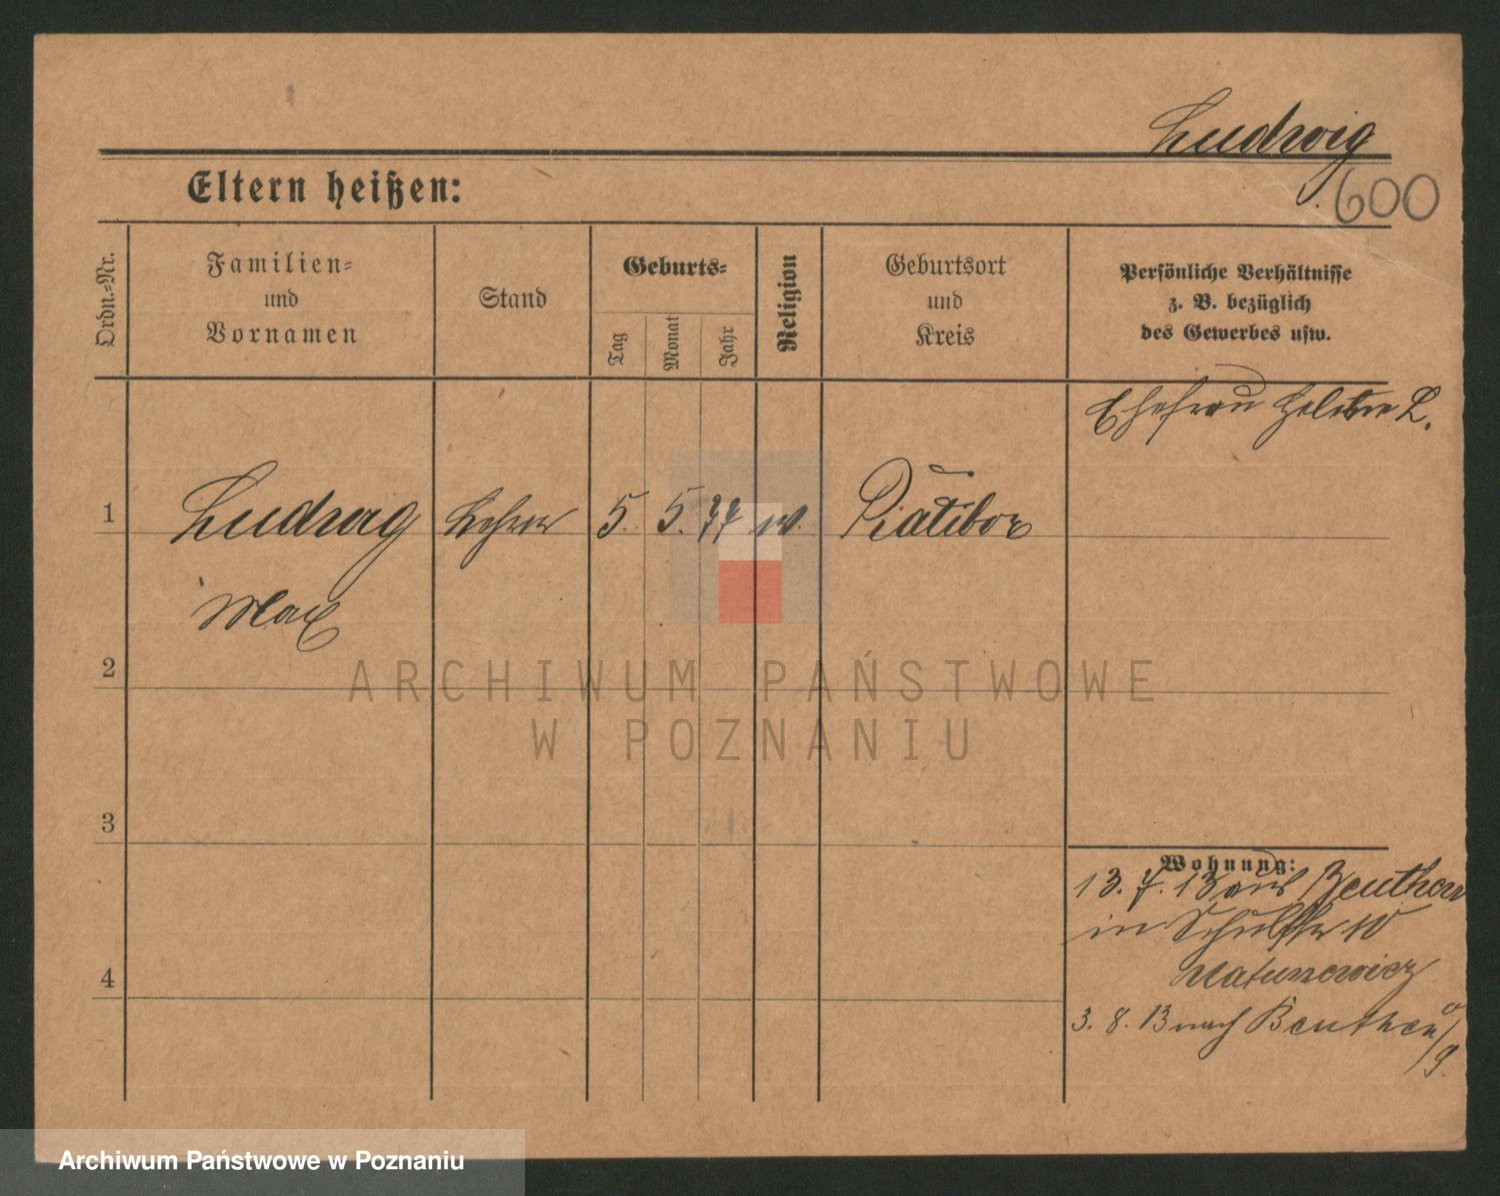 Ludwig
600
Eltern heißen:
Ordn.-Nr.
Familien-
und
Vornamen
Stand
Geburts-
Tag
Monat
Jahr
Religion
Geburtsort
und
Kreis
Persönliche Verhältnisse
z. B. bezüglich
des Gewerbes usw.
Ehefrau L.
1 Ludwig Lehrer 5. 5. 77 Ratibor
Max
2
ARCHIWUM PAŃSTWOWE
W POZNANIU
3
Wohnung:
13. 7. 13 aus Beuthen
in 10
4
3. 8. 13 nach Beuthen o/
S.
Archiwum Państwowe w Poznaniu